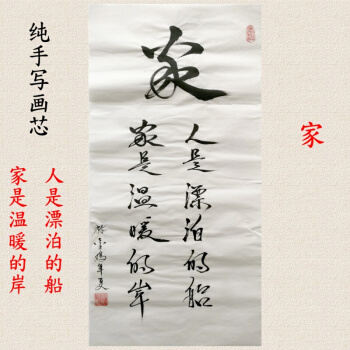 纯手写画芯
人是漂泊的船
家是温暖的岸
家
人是漂泊的船
家是温暖的岸
家